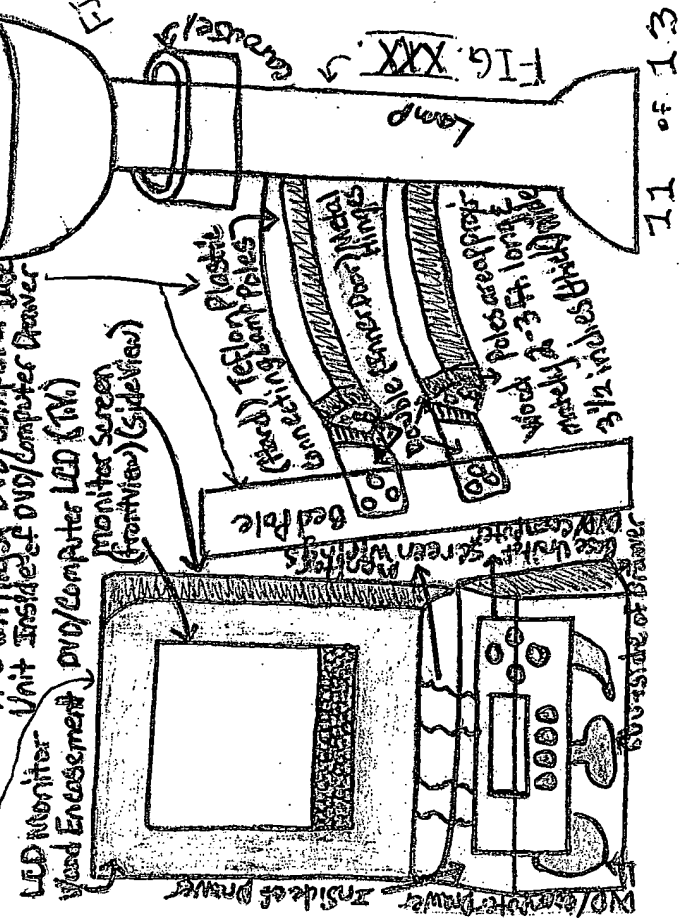 FIG. XXX
11 of 13
Unit Inside of DVD/Computer Drawer
LCD Monitor
Wood Encasement
DVD/Computer LCD (T.V.)
Monitor Screen
(frontview) (sideview)
(Hard) Teflon Plastic
Connecting Lamp Poles
Double (Inner Door) Metal
Hinges
Poles are approxi-
mately 2-3 ft. long &
3 1/2 inches (thick) wide
Wood
Carousel
Lamp
Bed Pole
Monitor's
Screen Wirings
Base Unit of
DVD/Computer
Inside of Drawer
DVD/Computer Drawer